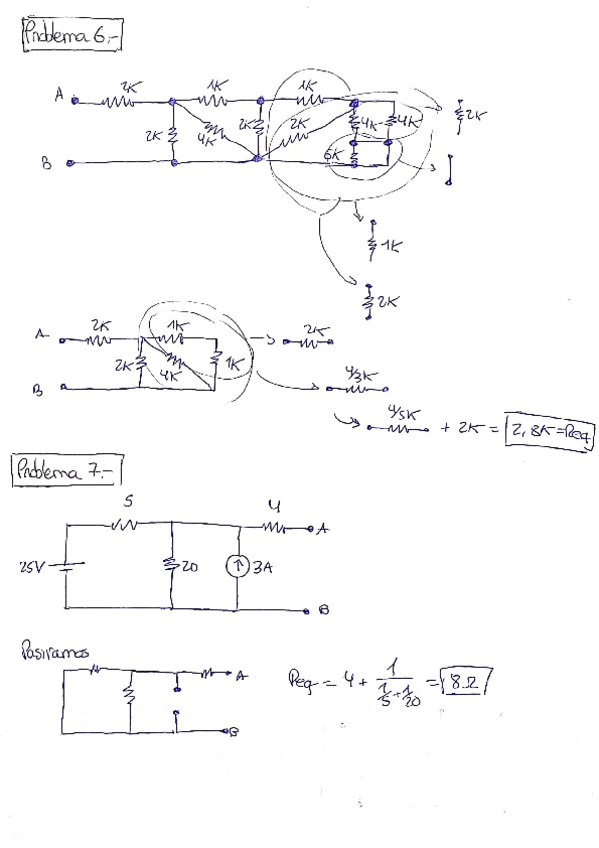 Problema 6.-
2K 1K 1K
A
2K 4K 2K 2K 4K 4K 2K
B 6K
1K
2K
A 2K 1K 2K
2K 4K 1K
B 4/3K
4/5K + 2K = 2,8K=Req
Problema 7.-
5 4
A
25V 20 3A
B
Pasivamos
A
B
Req = 4 + 1 / (1/5 + 1/20) = 8Ω